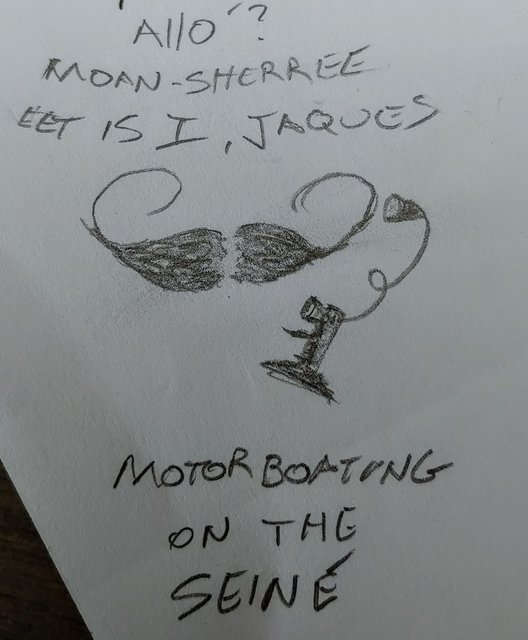 Allo'?
MOAN-SHERREE
EET IS I, JAQUES
MOTORBOATING
ON THE
SEINÉ